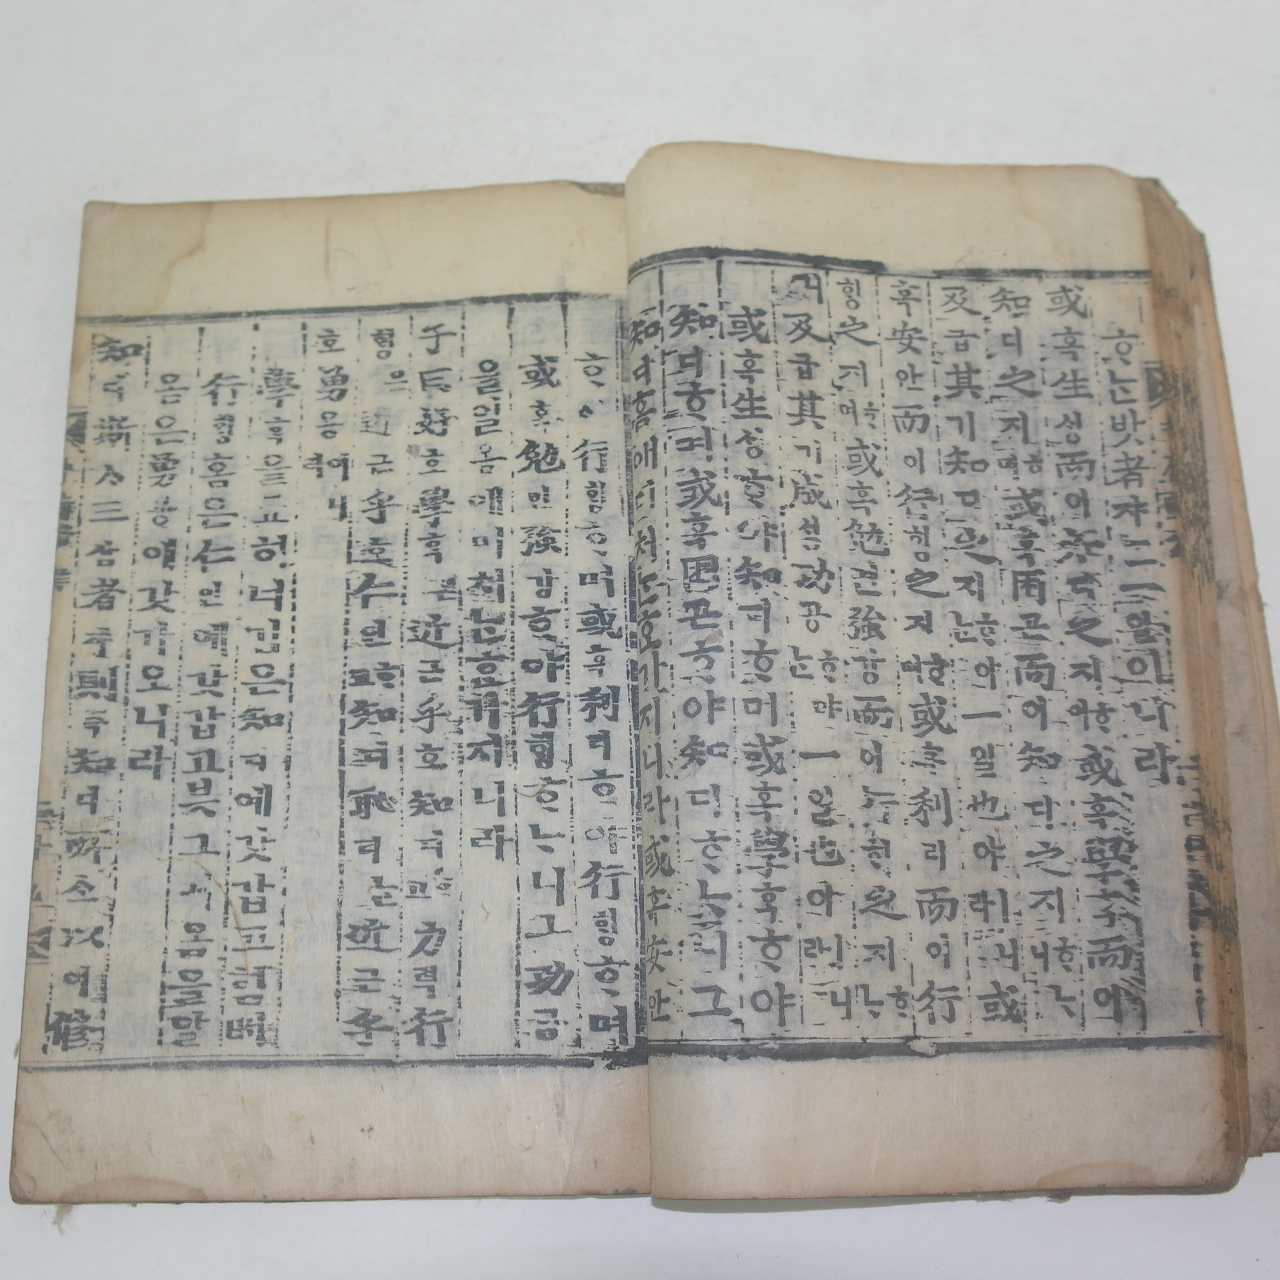 ᄒᆞᄂᆞᆫ밧者쟈ᄂᆞᆫ一일이니라
或혹生ᄉᆡᆼ而이知디之지ᄒᆞ며或혹學ᄒᆞᆨ而이
知디之지ᄒᆞ며或혹困곤而이知디之지ᄒᆞᄂᆞ니
及급其기知디之지ᄒᆞ야ᄂᆞᆫ一일也야ㅣ니라或
혹安안而이行ᄒᆡᆼ之지ᄒᆞ며或혹利리而이行
ᄒᆡᆼ之지ᄒᆞ며或혹勉면强강而이行ᄒᆡᆼ之지ᄒᆞᄂᆞ
니及급其기成셩功공ᄒᆞ야ᄂᆞᆫ一일也야ㅣ니라
或혹生ᄉᆡᆼᄒᆞ야知디ᄒᆞ며或혹學ᄒᆞᆨᄒᆞ야
知디ᄒᆞ며或혹困곤ᄒᆞ야知디ᄒᆞᄂᆞ니그
知디홈애미처ᄂᆞᆫᄒᆞᆫ가지니라或혹安안
ᄒᆞ야行ᄒᆡᆼᄒᆞ며或혹利리ᄒᆞ야行ᄒᆡᆼᄒᆞ며
或혹勉면强강ᄒᆞ야行ᄒᆡᆼᄒᆞᄂᆞ니그功공
을일옴애미처ᄂᆞᆫᄒᆞᆫ가지니라
子曰好호學ᄒᆞᆨ은近근乎호知디ᄒᆞ고力력行
ᄒᆡᆼ은近근乎호仁인ᄒᆞ고知디恥티ᄂᆞᆫ近근乎
호勇용이니라
學ᄒᆞᆨ을好호홈은知디예갓갑고힘ᄡᅥ
行ᄒᆡᆼ홈은仁인에갓갑고붓그러옴을알
옴은勇용애갓가오니라
知디斯ᄉᆞ三삼者쟈則즉知디所소以이修